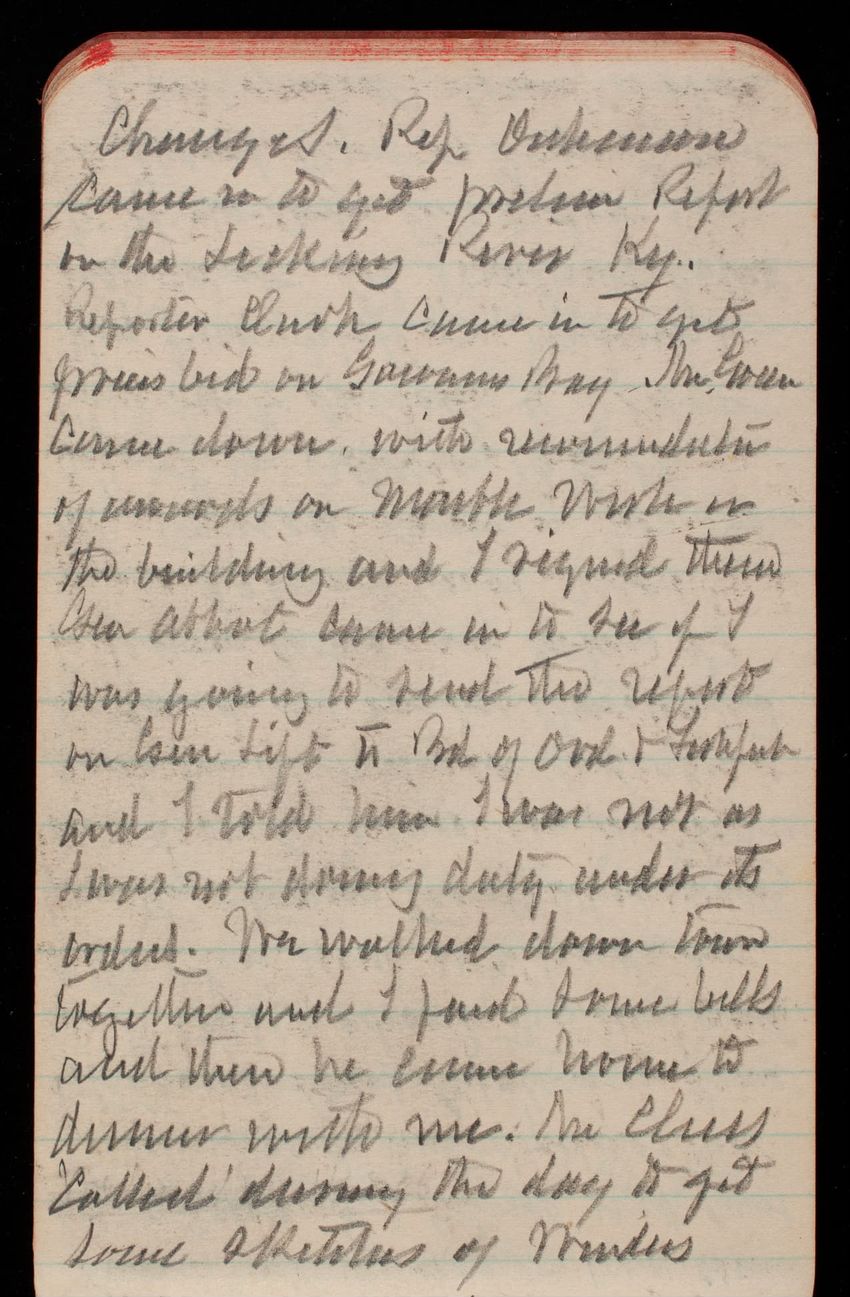 Changes. Rep Dickerson
came in to get prelim Report
on the Licking River Ky.
Reporter Clark came in to get
prices bid on Gowanus Bay. Mr.
came down. with recomndatn
of awards on Marble Work in
the building and I signed them
Gen Abbot came in to see if I
was going to send the report
on Gen Lift to Bd of Ord &
and I told him I was not as
I was not doing duty under its
orders. We walked down town
together and I paid some bills
and then he came home to
dinner with me. Mr
called during the day to get
some sketches of Winders